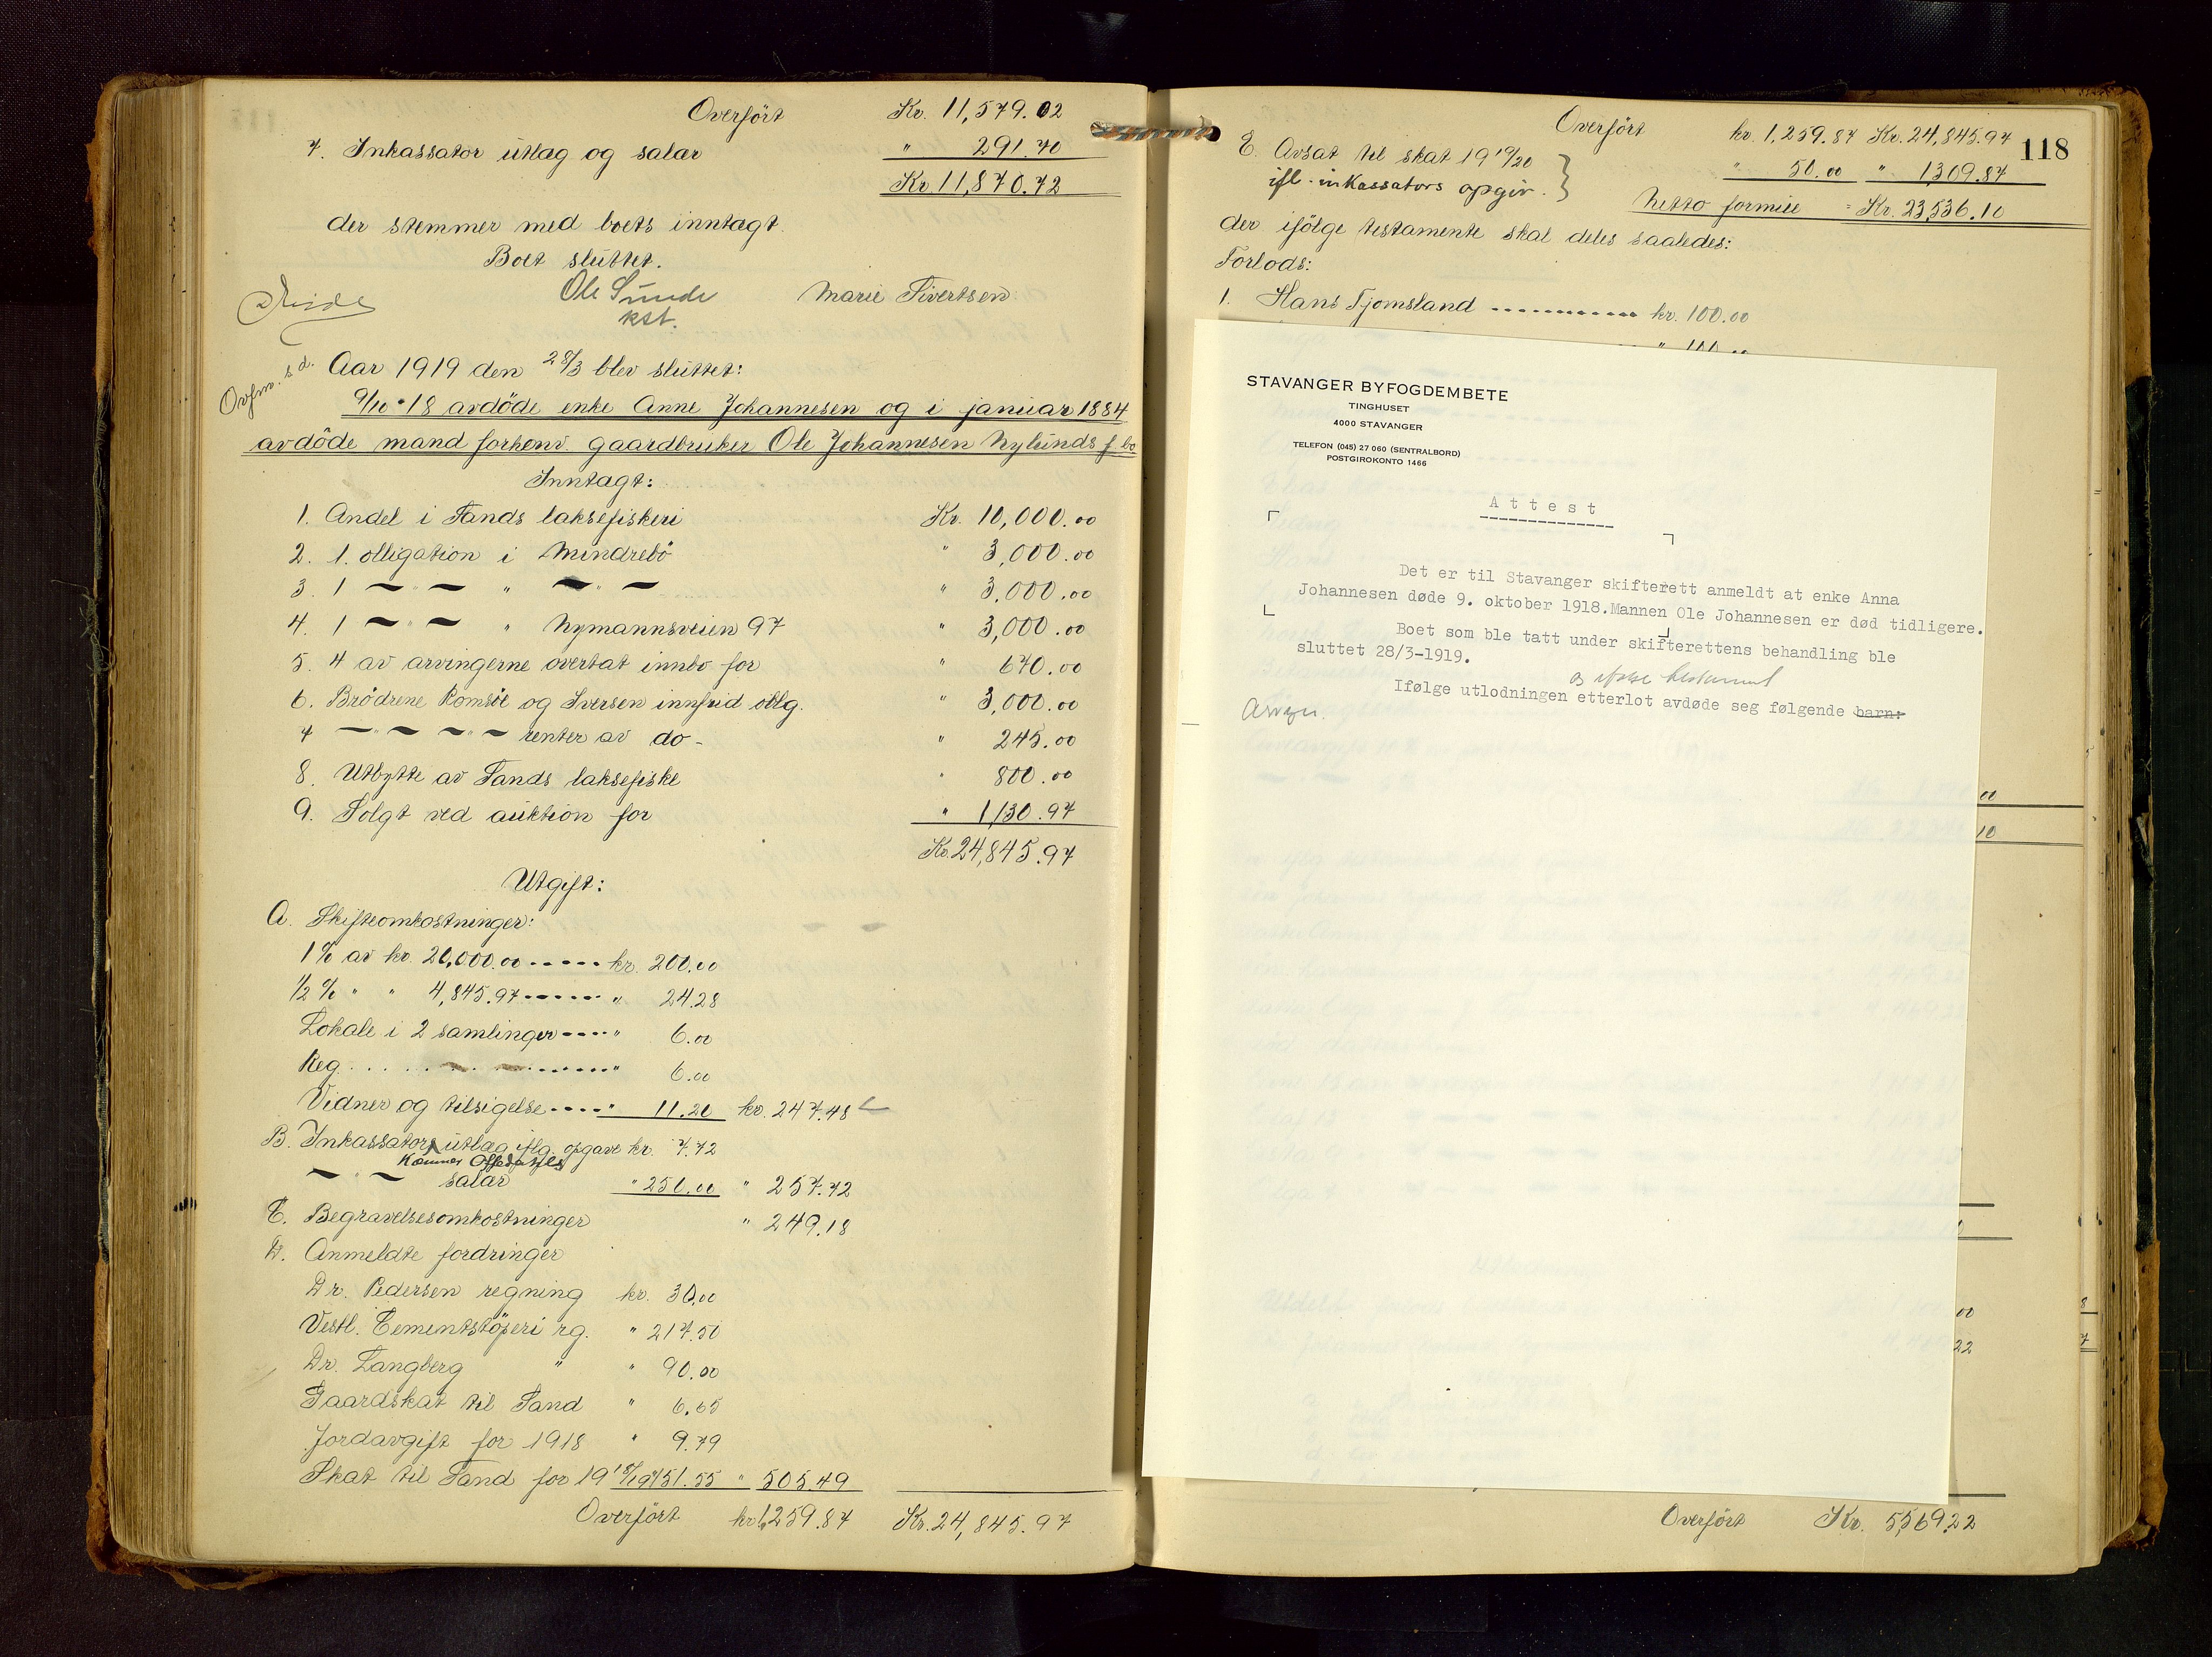 Overført Kr. 11,579.02
7. Inkassator utlæg og salær " 291.70
Kr. 11,870.72
der stemmer med boets inntægt.
Boet sluttet.
Ole Sunde Marie Sivertsen
kst.
Aar 1919 den 28/3 blev sluttet:
9/10-18 avdöde enke Anne Johannesen og i januar 1884
avdöde mand forhenv. gaardbruker Ole Johannesen Nylunds f. bo
Inntægt:
1. Andel i Sands laksefiskeri Kr. 10,000.00
2. 1. obligation i Mindrebö " 3,000.00
3. 1 — " — " — " — " 3,000.00
4. 1 — " — " Nymannsveien 97 " 3,000.00
5. 4 av arvingerne overtat innbo for " 670.00
6. Brödrene Romsöe og Iversen innfrid oblg. " 3,000.00
7 — " — — " — renter av do - " 245.00
8. Utbytte av Sands laksefiske " 800.00
9. Solgt ved auktion for " 1,130.97
Kr. 24,845.97
Utgift:
A. Skifteomkostninger:
1 % av kr. 20,000.00 ..... kr. 200.00
1/2 % " " 4,845.97 ...... " 24.28
Lokale i 2 samlinger .... " 6.00
Reg. ........ " 6.00
Vidner og tilsigelse .... " 11.20 kr. 247.48
B. Inkassators utlæg iflg. opgave kr. 7.72
Kæmner
— " — salær " 250.00 " 257.72
C. Begravelsesomkostninger " 249.18
D. Anmeldte fordringer
Dr. Pedersen regning kr. 30.00
Vestl. Cementstöperi rg. " 217.50
Dr. Langberg " " 90.00
Gaardskat til Sand " 6.65
Jordavgift for 1918 " 9.79
Skat til Sand for 1918/19 " 151.55 " 505.49
Overført kr 1,259.87 Kr. 24,845.97
118
Overført kr. 1,259.87 Kr. 24,845.97
E. Avsat til skat 1919/20
ifl. inkassators opgiv. } " 50.00 " 1309.87
Netto formue = Kr. 23,536.10
der ifölge testamente skal deles saaledes:
Forlods:
1. Hans Tjomsland ............ kr. 100.00
" 100.00
STAVANGER BYFOGDEMBETE
TINGHUSET
4000 STAVANGER
TELEFON (045) 27 060 (SENTRALBORD)
POSTGIROKONTO 1466
Attest
Det er til Stavanger skifterett anmeldt at enke Anna
Johannesen døde 9. oktober 1918.Mannen Ole Johannesen er død tidligere.
Boet som ble tatt under skifterettens behandling ble
sluttet 28/3-1919.
Ifølge utlodningen etterlot avdøde seg følgende barn:
00
10
00
22
8
7
Overført Kr. 5,569.22